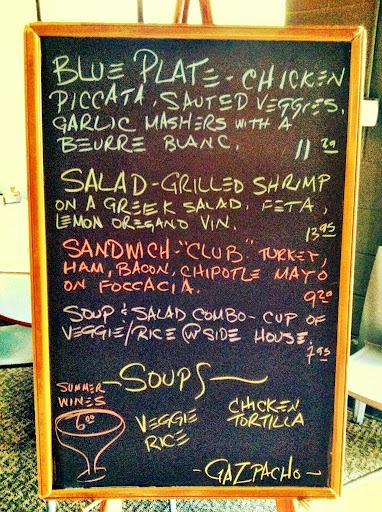 BLUE PLATE - CHICKEN
PICCATA, SAUTED VEGGIES,
GARLIC MASHERS WITH A
BEURRE BLANC.
SALAD - GRILLED SHRIMP
ON A GREEK SALAD. FETA,
LEMON OREGANO VIN.
13.95
SANDWICH - "CLUB" TURKEY,
HAM, BACON, CHIPOTLE MAYO
ON FOCCACIA.
SOUP & SALAD COMBO - CUP OF
VEGGIE/RICE W SIDE HOUSE.
7.95
SOUPS
SUMMER
WINES
6.00
VEGGIE
RICE
CHICKEN
TORTILLA
- GAZPACHO -